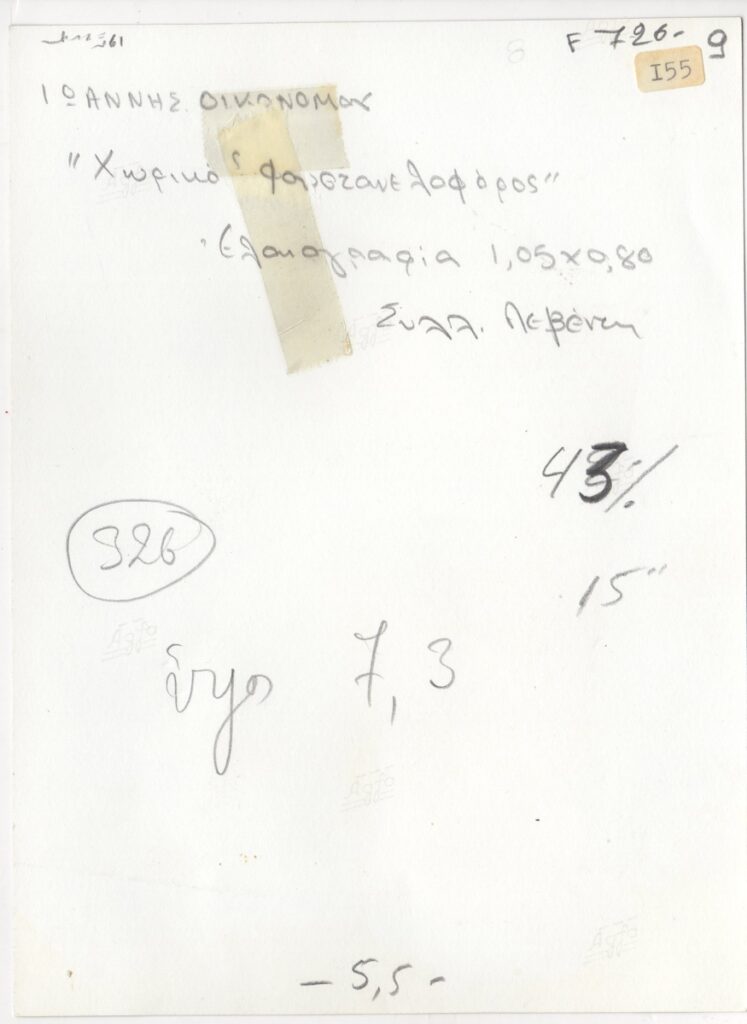 F 726.- 9
I55
ΙΩΑΝΝΗΣ ΟΙΚΟΝΟΜΟΥ
"Χωρικός φουστανελοφόρος"
Ελαιογραφία 1,05x0,80
Συλλ. Λεβέντη
43%
326
15"
ύψο 7,3
- 5,5 -